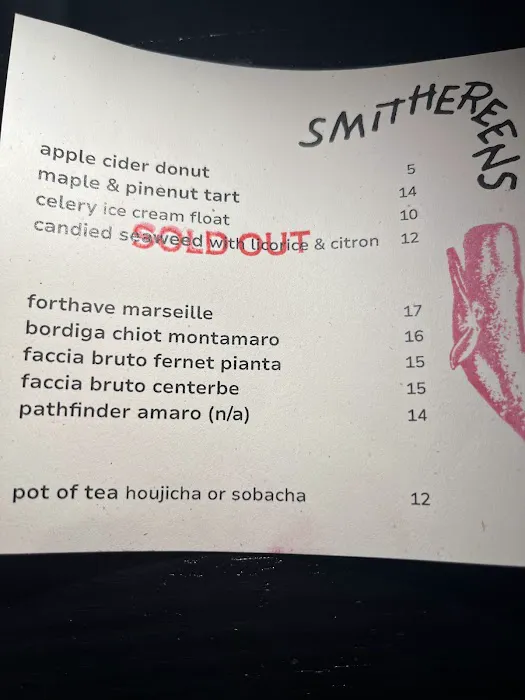 SMITHEREENS
apple cider donut 5
maple & pinenut tart 14
celery ice cream float 10
candied seaweed with licorice & citron 12
SOLD OUT
forthave marseille 17
bordiga chiot montamaro 16
faccia bruto fernet pianta 15
faccia bruto centerbe 15
pathfinder amaro (n/a) 14
pot of tea houjicha or sobacha 12